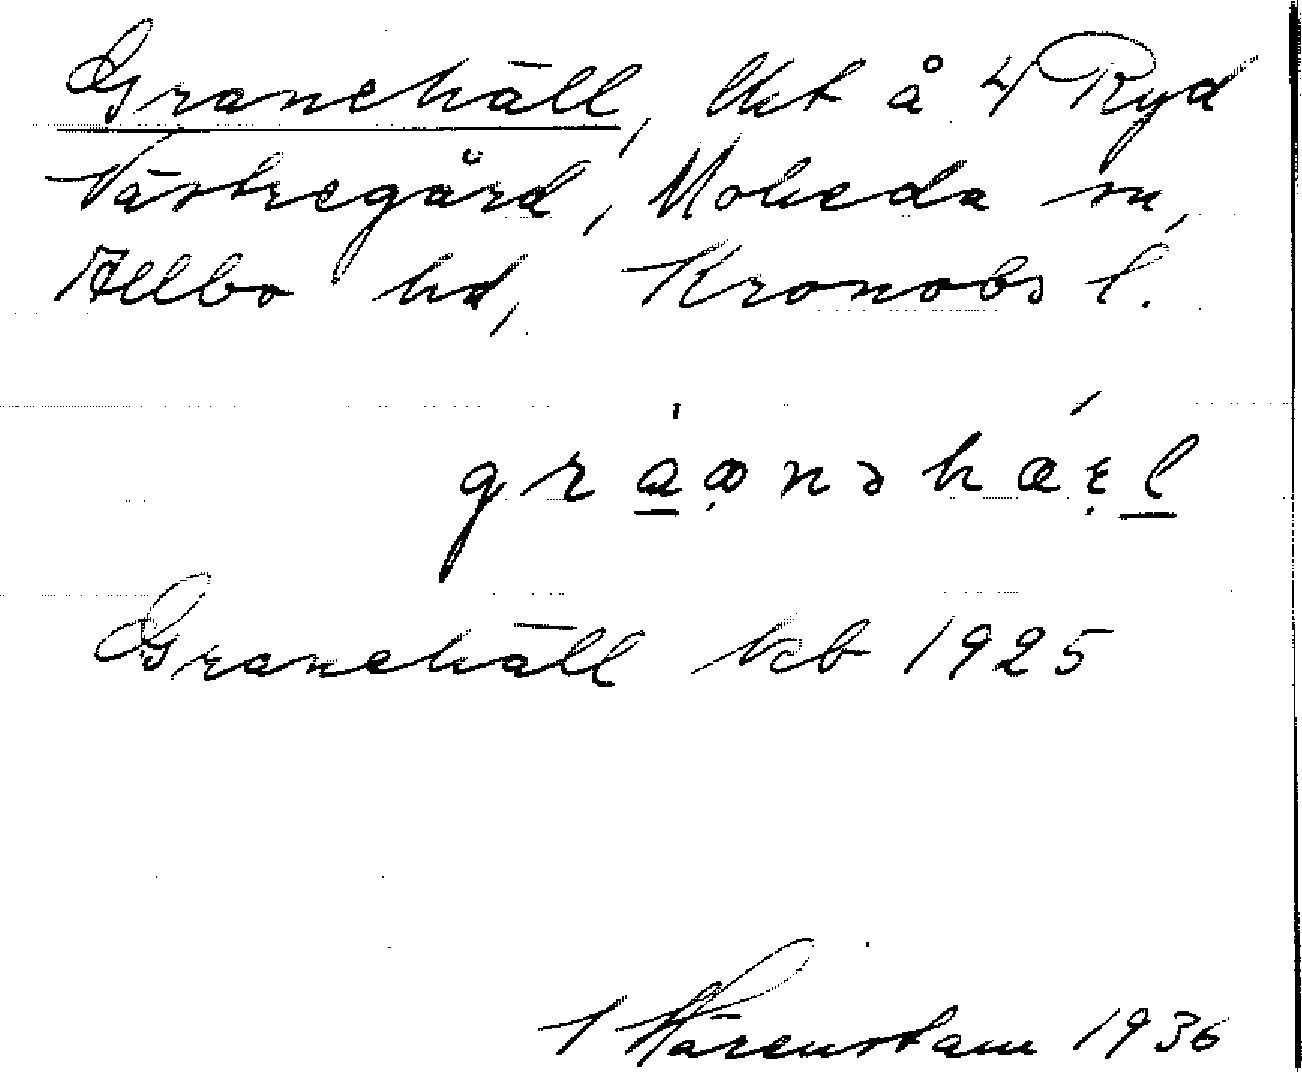 Granehäll, lht å 4 Ryd
Västregård, Moheda sn,
Allbo hd, Kronobs l.
Granehäll kb 1925
Härenstam 1936